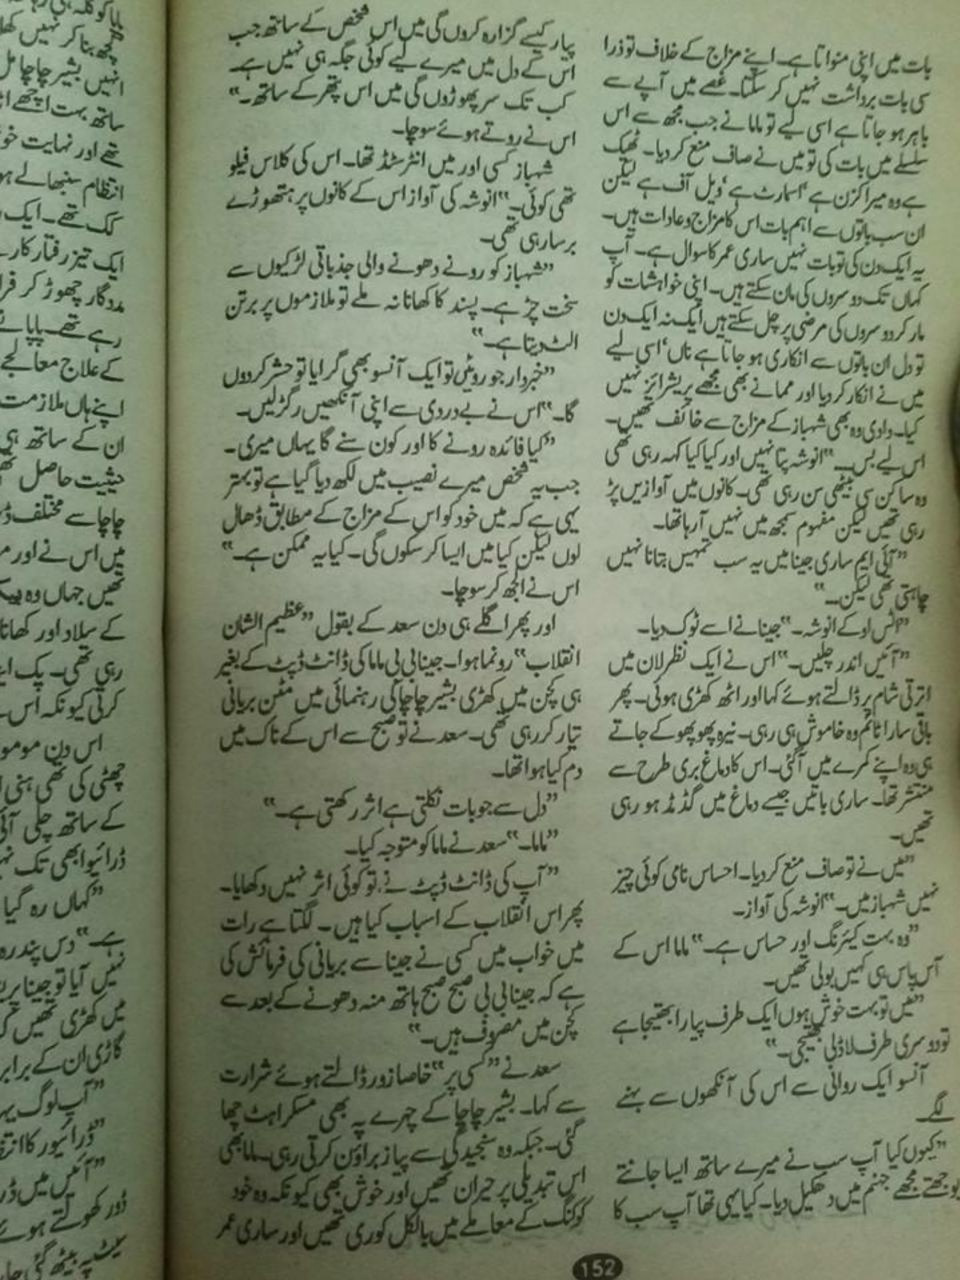 بات میں اپنی منواتا ہے۔ اپنے مزاج کے خلاف تو ذرا
سی بات برداشت نہیں کر سکتا۔ غصے میں آپے سے
باہر ہو جاتا ہے اسی لیے تو ماما نے جب مجھ سے اس
سلسلے میں بات کی تو میں نے صاف منع کر دیا۔ ٹھیک
ہے وہ میرا کزن ہے، اسمارٹ ہے، ویل آف ہے لیکن
ان سب باتوں سے اہم بات اس کا مزاج و عادات ہیں۔
یہ ایک دن کی تو بات نہیں ساری عمر کا سوال ہے۔ آپ
کہاں تک دوسروں کی مان سکتے ہیں۔ اپنی خواہشات کو
مار کر دوسروں کی مرضی پر چل سکتے ہیں ایک نہ ایک دن
تو دل ان باتوں سے انکاری ہو جاتا ہے ناں، اسی لیے
میں نے انکار کر دیا اور ممانے بھی مجھے پریشرائز نہیں
کیا۔ وادی وہ بھی شہباز کے مزاج سے خائف تھیں۔
اس لیے بس۔" انوشہ پتا نہیں اور کیا کیا کہہ رہی تھی
وہ ساکن سی بیٹھی سن رہی تھی۔ کانوں میں آوازیں پڑ
رہی تھیں لیکن مفہوم سمجھ میں نہیں آ رہا تھا۔
"آئی ایم ساری جینا میں یہ سب تمہیں بتانا نہیں
چاہتی تھی لیکن۔"
"اٹس اوکے انوشہ۔" جینا نے اسے ٹوک دیا۔
"آئیں اندر چلیں۔" اس نے ایک نظر لان میں
اترتی شام پر ڈالتے ہوئے کہا اور اٹھ کھڑی ہوئی۔ پھر
باقی سارا ٹائم وہ خاموش ہی رہی۔ نیرہ پھوپھو کے جاتے
ہی وہ اپنے کمرے میں آ گئی۔ اس کا دماغ بری طرح سے
منتشر تھا۔ ساری باتیں جیسے دماغ میں گڈمڈ ہو رہی
تھیں۔
"میں نے تو صاف منع کر دیا۔ احساس نامی کوئی چیز
نہیں شہباز میں۔" انوشہ کی آواز۔
"وہ بہت کیئرنگ اور حساس ہے۔" ماما اس کے
آس پاس ہی کہیں بولی تھیں۔
"میں تو بہت خوش ہوں ایک طرف پیارا بھتیجا ہے
تو دوسری طرف لاڈلی بھتیجی۔"
آنسو ایک روانی سے اس کی آنکھوں سے بہنے
لگے۔
"کیوں کیا آپ سب نے میرے ساتھ ایسا جانتے
بوجھتے مجھے جہنم میں دھکیل دیا۔ کیا یہی تھا آپ سب کا
پیار کیسے گزارہ کروں گی میں اس شخص کے ساتھ جب
اس کے دل میں میرے لیے کوئی جگہ ہی نہیں ہے۔
کب تک سر پھوڑوں گی میں اس پتھر کے ساتھ۔"
اس نے روتے ہوئے سوچا۔
شہباز کسی اور میں انٹرسٹڈ تھا۔ اس کی کلاس فیلو
تھی کوئی۔" انوشہ کی آواز اس کے کانوں پر ہتھوڑے
برسا رہی تھی۔
"شہباز کو رونے دھونے والی جذباتی لڑکیوں سے
سخت چڑ ہے۔ پسند کا کھانا نہ ملے تو ملازموں پر برتن
الٹ دیتا ہے۔"
"خبردار جو روئیں تو ایک آنسو بھی گرایا تو حشر کر دوں
گا۔" اس نے بے دردی سے اپنی آنکھیں رگڑ لیں۔
"کیا فائدہ رونے کا اور کون سنے گا یہاں میری۔
جب یہ شخص میرے نصیب میں لکھ دیا گیا ہے تو بہتر
یہی ہے کہ میں خود کو اس کے مزاج کے مطابق ڈھال
لوں لیکن کیا میں ایسا کر سکوں گی۔ کیا یہ ممکن ہے۔"
اس نے الجھ کر سوچا۔
اور پھر اگلے ہی دن سعد کے بقول "عظیم الشان
انقلاب" رونما ہوا۔ جینا بی بی ماما کی ڈانٹ ڈپٹ کے بغیر
ہی کچن میں کھڑی بشیر چاچا کی رہنمائی میں مٹن بریانی
تیار کر رہی تھی۔ سعد نے تو صبح سے اس کے ناک میں
دم کیا ہوا تھا۔
"دل سے جو بات نکلتی ہے اثر رکھتی ہے۔"
"ماما۔" سعد نے ماما کو متوجہ کیا۔
"آپ کی ڈانٹ ڈپٹ نے تو کوئی اثر نہیں دکھایا۔
پھر اس انقلاب کے اسباب کیا ہیں۔ لگتا ہے رات
میں خواب میں کسی نے جینا سے بریانی کی فرمائش کی
ہے کہ جینا بی بی صبح صبح ہاتھ منہ دھونے کے بعد سے
کچن میں مصروف ہیں۔"
سعد نے "کسی پر" خاصا زور ڈالتے ہوئے شرارت
سے کہا۔ بشیر چاچا کے چہرے پہ بھی مسکراہٹ چھا
گئی۔ جبکہ وہ سنجیدگی سے پیاز براؤن کرتی رہی۔ ماما بھی
اس تبدیلی پر حیران تھیں اور خوش بھی کیونکہ وہ خود
کوکنگ کے معاملے میں بالکل کوری تھیں اور ساری عمر
152
انہیں بشیر چاچا
ساتھ بہت اچھے
تھے اور نہایت
انتظام سنبھالے
کک تھے۔ ایک
ایک تیز رفتار کار
مددگار چھوڑ کر
رہے تھے۔ پاپا نے
کے علاج معالجے
اپنے ہاں ملازمت
ان کے ساتھ ہی
حیثیت حاصل
چاچا سے مختلف
میں اس نے اور
تھیں جہاں وہ
کے سلاد اور
رہی تھی۔
کرتی کیونکہ اس
اس دن
چھٹی کی تھی
کے ساتھ چلی
ڈرائیو ابھی تک
"کہاں رہ گیا
ہے۔" دس پندرہ
نہیں آیا تو جینا
میں کھڑی تھیں
گاڑی ان کے برابر
"آپ لوگ
"ڈرائیور کا
"آئیں میں
ڈور کھولتے ہوئے
سیٹ پہ بیٹھ گئی